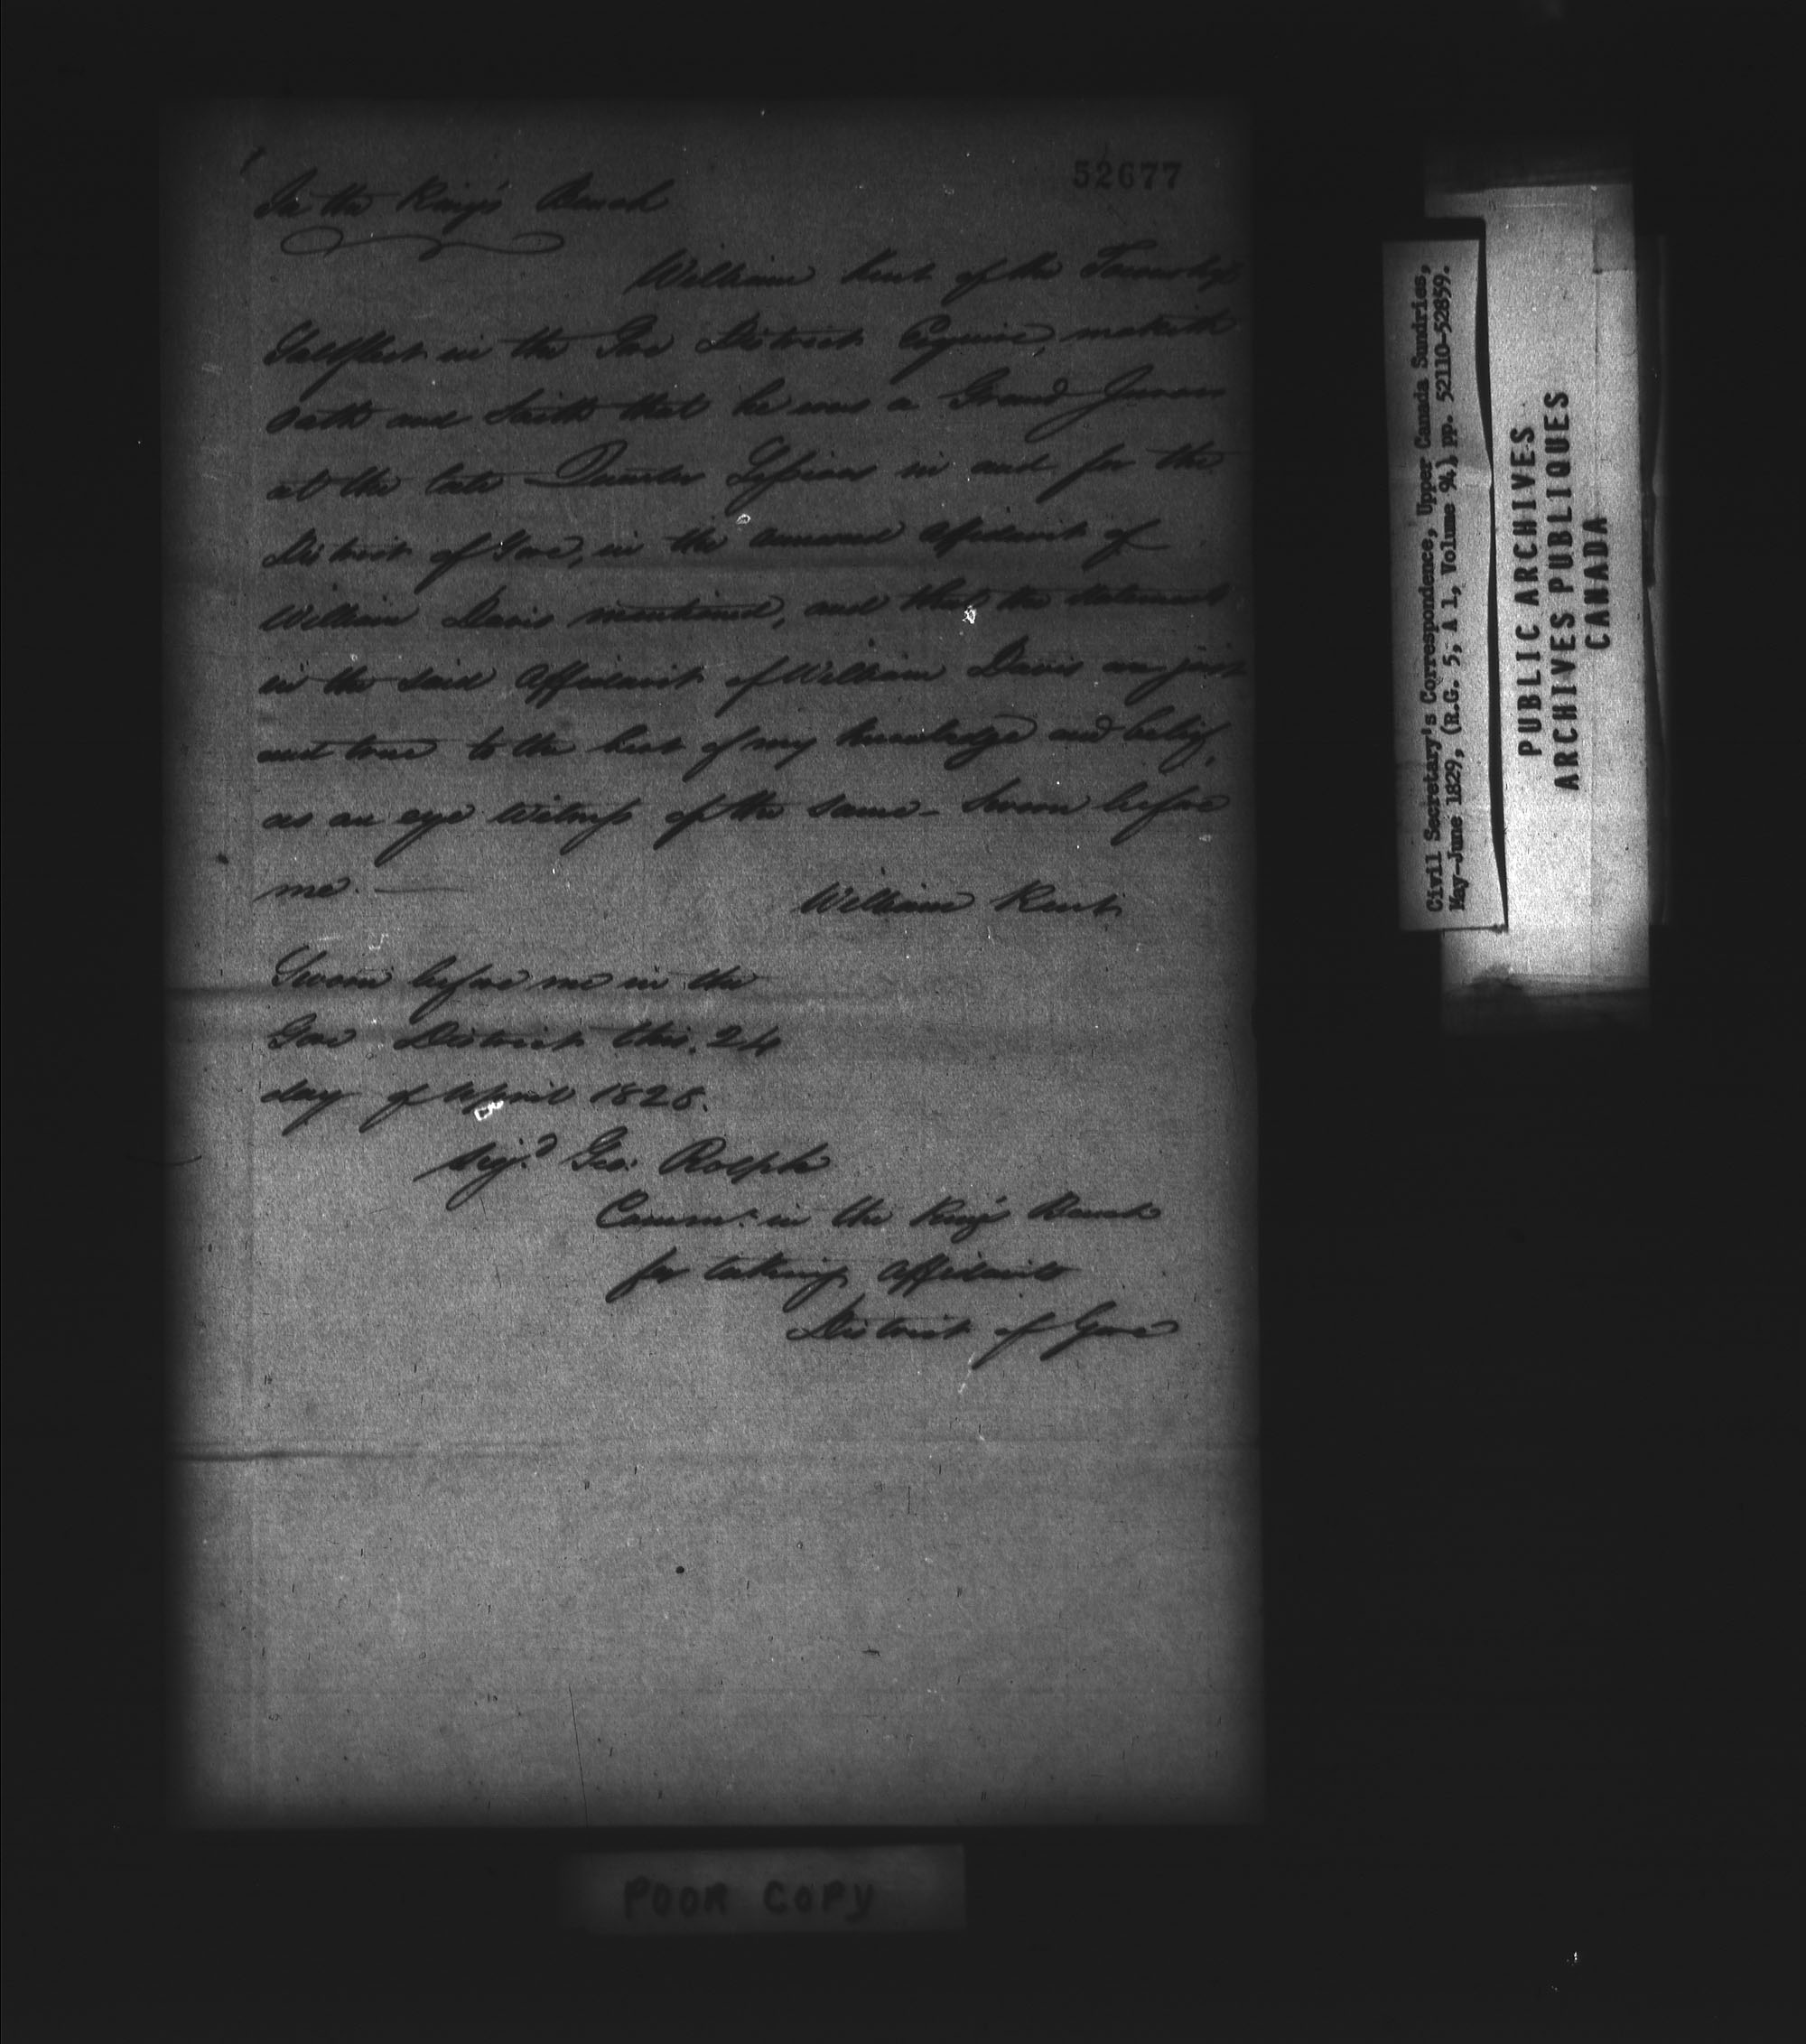 52677
In the King's Bench
William Kent of the Township
Saltfleet in the Gore District Esquire, maketh
oath and saith that he was a Grand Juror
at the late Quarter Sessions in and for the
District of Gore, in the annexed affidavit of
William Davis mentioned, and that the statements
in the said Affidavit of William Davis are just
and true to the best of my knowledge and belief,
as an eye witness of the same - Sworn before
me.
William Kent
Sworn before me in the
Gore District this 24
day of April 1828.
Sigd Geo: Rolph
Commr. in the King's Bench
for taking affidavits
District of Gore
POOR COPY
Civil Secretary's Correspondence, Upper Canada Sundries,
May-June 1829, (R.G. 5, A 1, Volume 94), pp. 52110-52859.
PUBLIC ARCHIVES
ARCHIVES PUBLIQUES
CANADA